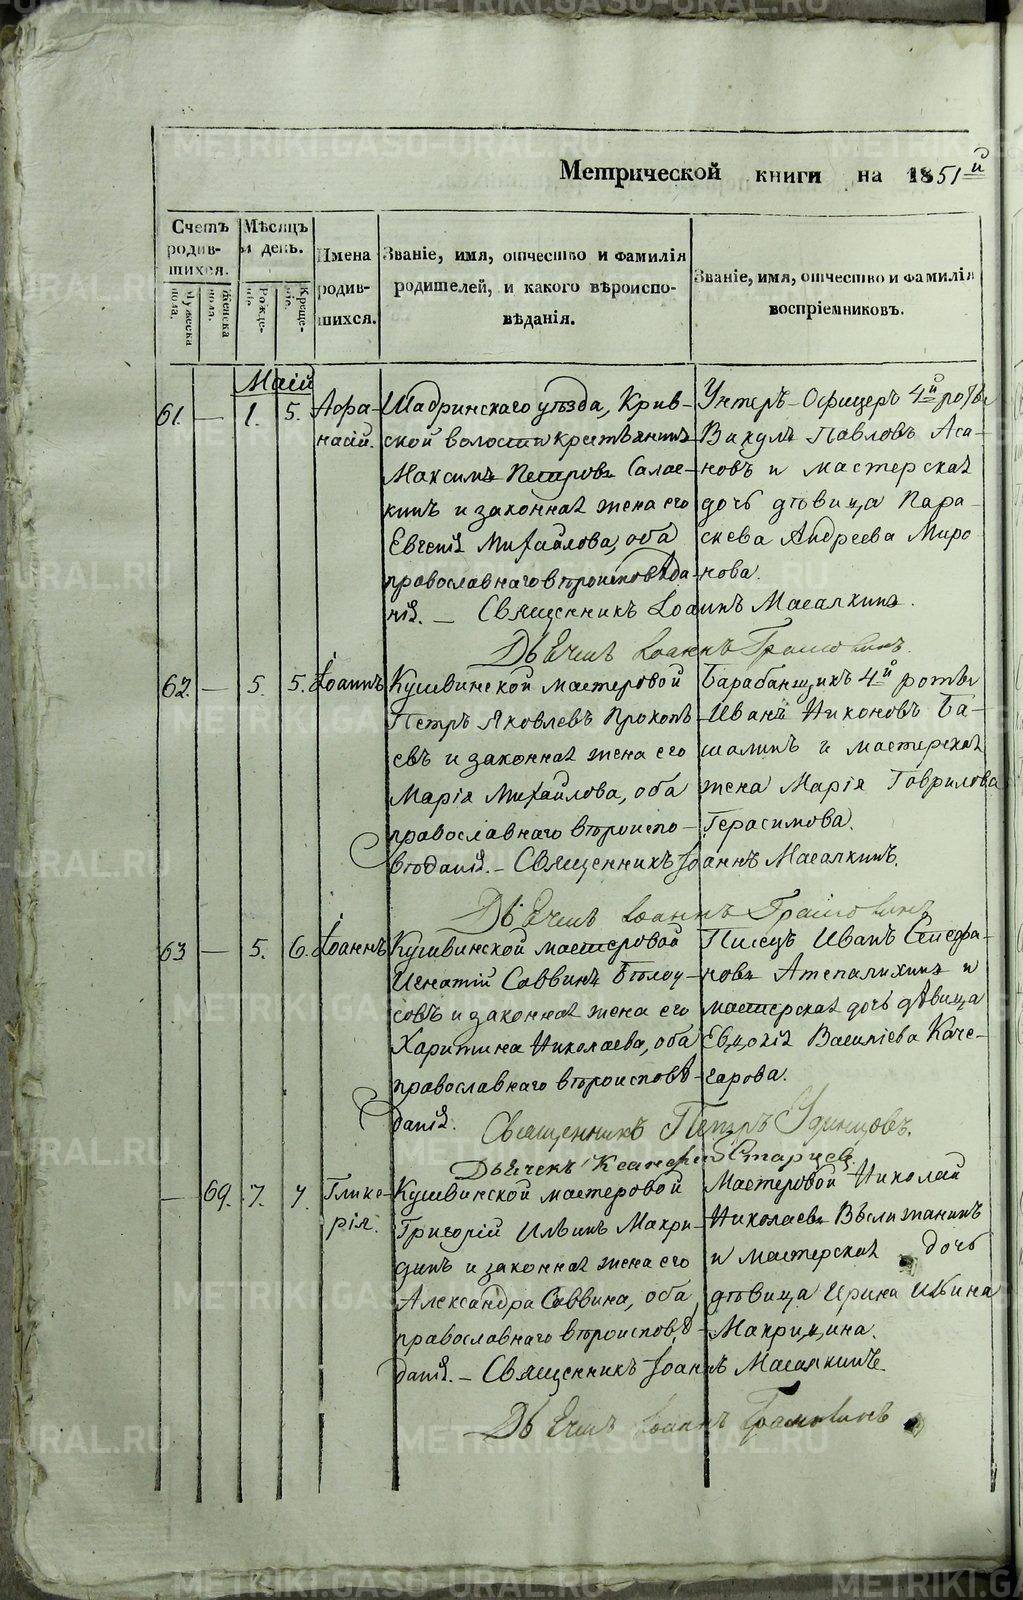 Метрической книги на 1851й
Счетъ родив-шихся.
Мѣсяцъ и день.
Имена родив-шихся.
Званіе, имя, отчество и фамилія родителей, и какого вѣроиспо-вѣданія.
Званіе, имя, отчество и фамилія воспріемниковъ.
Мужеска пола.
Женска пола.
Рожде-ніе.
Креще-ніе.
Маій
61. — 1. 5. Афа-насій.
Шадринскаго уѣзда, Крив-
ской волости крестьянинъ
Максимъ Петровъ Салае-
кинъ и законная жена его
Евгенія Михайлова, оба
православнаго вѣроисповѣда-
нія. — Священникъ Іоаннъ Масалкинъ.
Дьячекъ Іоаннъ
Унтеръ-Офицеръ 4й роты
Вакулъ Павловъ Аса-
новъ и мастерская
дочь дѣвица Пара-
скева Андреева Миро-
нова.
62. — 5. 5. Іоаннъ
Кушвинской мастеровой
Петръ Яковлевъ Прокопь-
евъ и законная жена его
Марія Михайлова, оба
православнаго вѣроиспо-
вѣданія. — Священникъ Іоаннъ Масалкинъ.
Дьячекъ Іоаннъ
Барабанщикъ 4й роты
Иванъ Никоновъ Ба-
шалинъ и мастерская
жена Марія Гаврилова
Герасимова.
63 — 5. 6. Іоаннъ
Кушвинской мастеровой
Игнатій Саввинъ Бѣлоу-
совъ и законная жена его
Харитина Николаева, оба
православнаго вѣроисповѣ-
данія. Священникъ Петръ Удинцовъ.
Дьячекъ Старцев
Писецъ Иванъ Стефа-
новъ Атепалихинъ и
мастерская дочь дѣвица
Евдокія Василіева Каче-
гарова.
— 69. 7. 7. Глике-рія.
Кушвинской мастеровой
Григорій Ильинъ Макри-
цинъ и законная жена его
Александра Саввина, оба
православнаго вѣроисповѣ-
данія. — Священникъ Іоаннъ Масалкинъ
Дьячекъ Іоаннъ
Мастеровой Николай
Николаевъ Вѣлижанинъ
и мастерская дочь
дѣвица Ирина Ильина
Макрицина.
METRIKI.GASO-URAL.RU